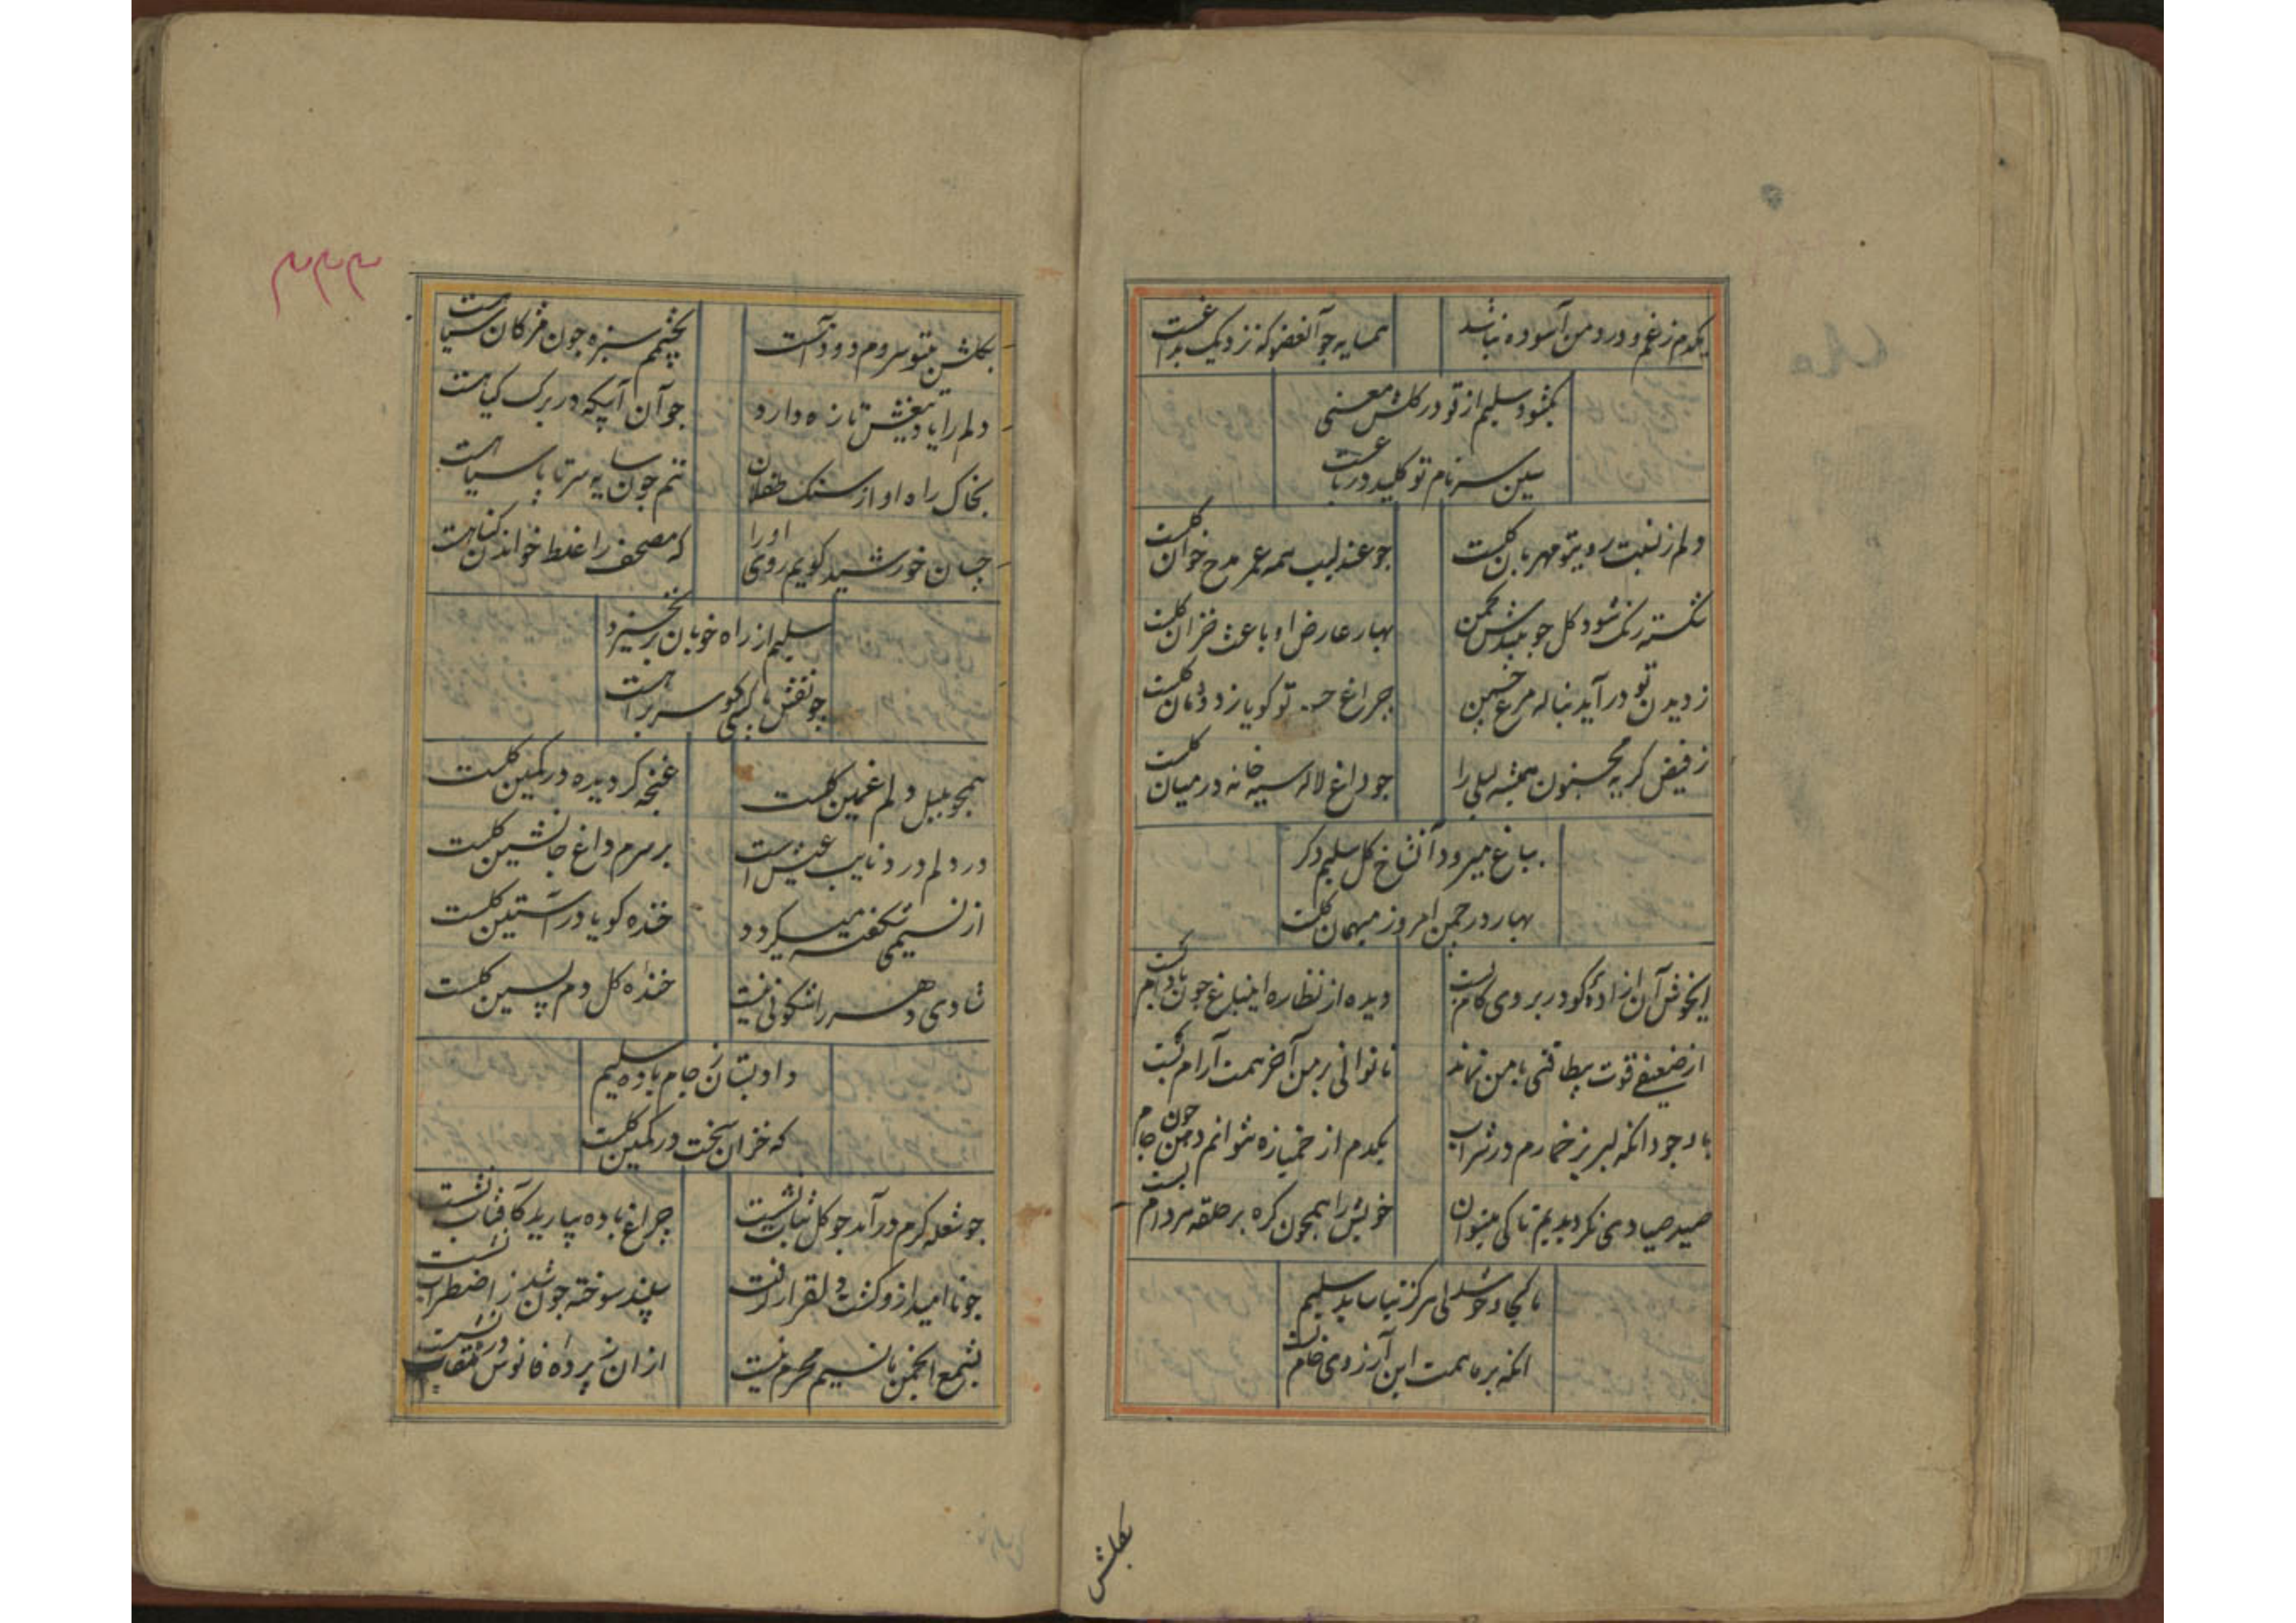 یکدم ز غم و درد من آسوده نباشد
همسایه جو آنعضو که نزدیک بداغست
بکشود سلیم از تو در کلشن معنی
سین سر نام تو کلید در باغست
دلم ز نسبت رویتو مهربان کلست
جو عندلیب همه عمر مدح خوان کلست
شکسته رنک شود کل جو بیندش بچمن
بهار عارض او باعث خزان کلست
ز دیدن تو در آید بناله مرغ چمن
جراغ حسن تو کویا ز دودمان کلست
ز فیض کریه مجنون همیشه لیلی را
جو داغ لاله سیه خانه در میان کلست
بباغ میرود آنشاخ کل سلیم دکر
بهار در جمن امروز میهمان کلست
ایخوش آن ازادهٔ کو در بروی کام بست
دیده از نظاره اینباغ جون بادام بست
از ضعیفی قوت بیطاقتی با من نماند
ناتوانی بر من آخر تهمت آرام بست
با وجود انکه لبریز خمارم در شراب
یکدم از خمیازه نتوانم دهن جون جام بست
صید صیادی نکردیدیم تا کی میتوان
خویش را همجون کره بر حلقه هر دام
ما کجا و خوشدلی هرکز نیاساید سلیم
انکه بر ما تهمت این آرزوی خام بست
بکلشن
۳۳۳
بکلشن بیتو سروم دود آهست
بچشمم سبزه جون مژکان سیاهست
دلم را یاد تیغش تازه دارد
جو آن آبیکه در برک کیاهست
بخاک راه او از سنک طفلان
تنم جون سایه سر تا پا سیاهست
جسان خورشید کویم روی او را
که مصحف را غلط خواندن کناهست
سلیم از راه خوبان برنخیزد
جو نقش پا کسی کو سر براهست
همجو بلبل دلم غمین کلست
غنچه کردیده در کمین کلست
در دلم درد نایب عیش است
بر سرم داغ جانشین کلست
از نسیمی شکفته میکردد
خنده کویا در آستین کلست
شادی دهر را شکونی نیست
خندهٔ کل دم پسین کلست
داد بستان ز جام باده سلیم
که خزان سخت در کمین کلست
جو شعله کرم در آمد جو کل بتاب نشست
چراغ باده بیارید کآفتاب نشست
جو ناامید ازو کشت دلقرار کرفت
سپند سوخته جون شد ز اضطراب نشست
بشمع انجمن ما نسیم محرم نیست
از ان ز پردهٔ فانوس در نقاب نشست